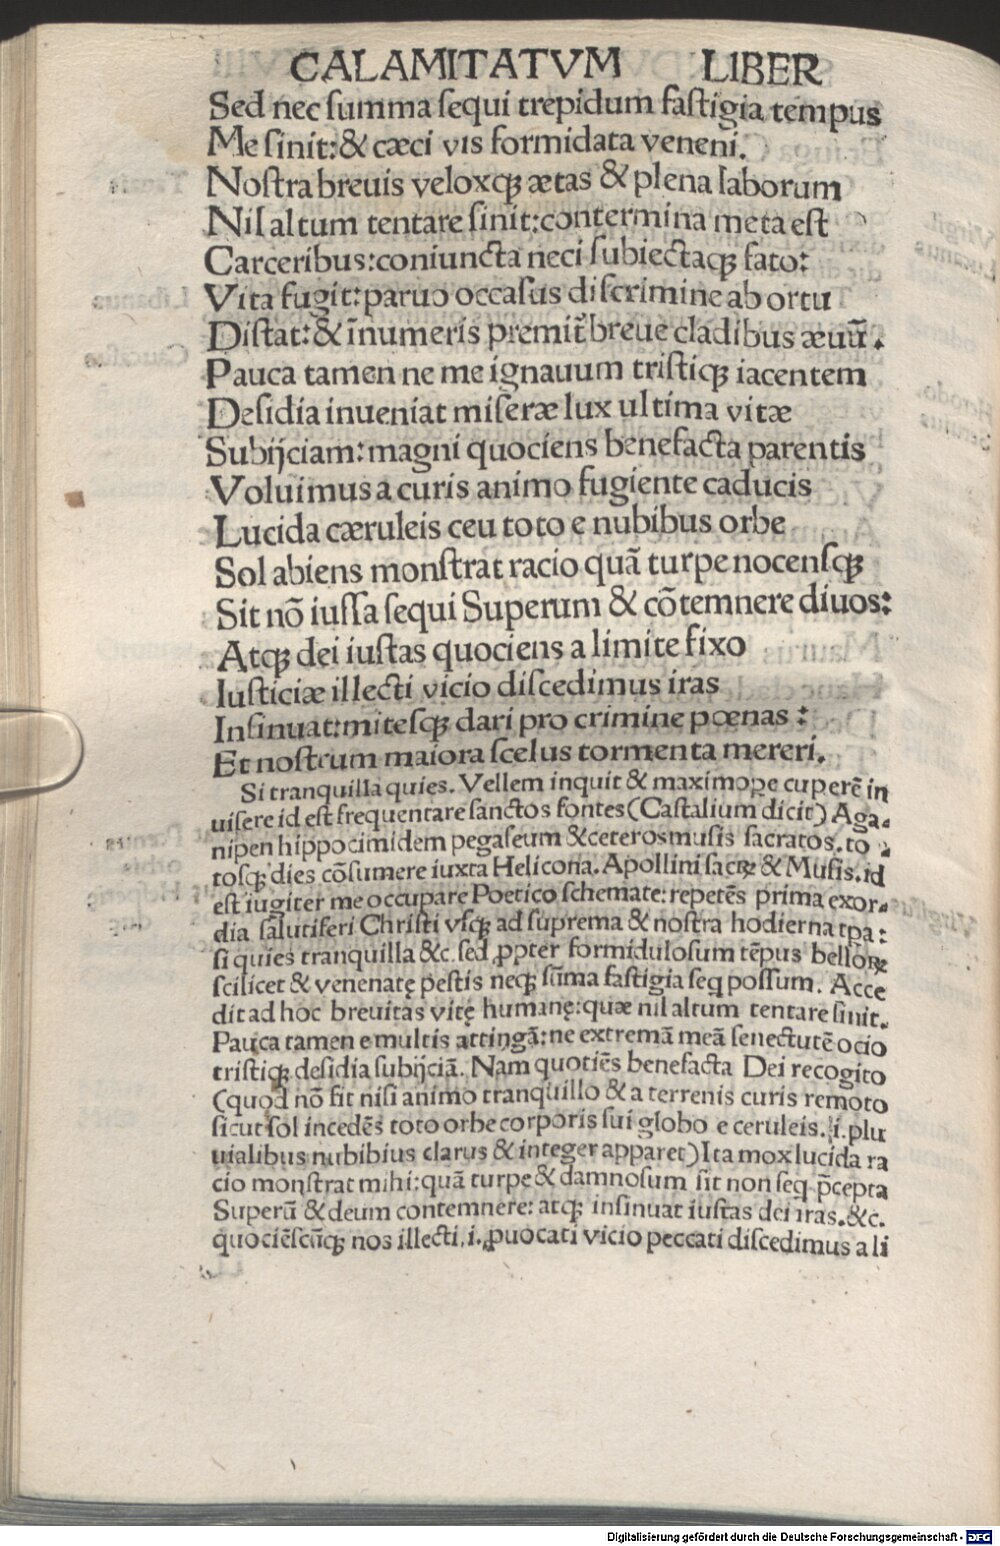 CALAMITATVM LIBER
Sed nec summa sequi trepidum fastigia tempus
Me sinit: & cæci vis formidata veneni.
Nostra breuis veloxqꝫ ætas & plena laborum
Nil altum tentare sinit: contermina meta est
Carceribus: coniuncta neci subiectaqꝫ fato:
Vita fugit: paruo occasus discrimine ab ortu
Distat: & īnumeris premit̃ breue cladibus æuū.
Pauca tamen ne me ignauum tristiqꝫ iacentem
Desidia inueniat miseræ lux ultima vitæ
Subijciam: magni quociens benefacta parentis
Voluimus a curis animo fugiente caducis
Lucida cæruleis ceu toto e nubibus orbe
Sol abiens monstrat racio quã turpe nocensqꝫ
Sit nõ iussa sequi Superum & cõtemnere diuos:
Atqꝫ dei iustas quociens a limite fixo
Iusticiæ illecti vicio discedimus iras
Insinuat: mitesqꝫ dari pro crimine pœnas:
Et nostrum maiora scelus tormenta mereri.
Si tranquilla quies. Vellem inquit & maximoꝑe cuperē in
uisere id est frequentare sanctos fontes (Castalium dicit) Aga-
nipen hippocimidem pegaseum & ceteros musis sacratos. to
tosqꝫ dies cõsumere iuxta Helicona. Apollini sacrꝝ & Musis. id
est iugiter me occupare Poetico schemate: repetēs prima exor-
dia salutiferi Christi vsqꝫ ad suprema & nostra hodierna tpa:
si quies tranquilla &c. sed ꝓpter formidulosum tēpus bellorꝝ
scilicet & venenatę pestis neqꝫ sūma fastigia seq possum. Acce
dit ad hoc breuitas vitę humanę: quæ nil altum tentare sinit.
Pauca tamen e multis attingã: ne extremã meã senectutē ocio
tristiqꝫ desidia subijciã. Nam quotiēs benefacta Dei recogito
(quod nõ fit nisi animo tranquillo & a terrenis curis remoto
sicut sol incedēs toto orbe corporis sui globo e ceruleis. i. plu
uialibus nubibius clarus & integer apparet) Ita mox lucida ra
cio monstrat mihi: quã turpe & damnosum sit non seq p̄cepta
Superū & deum contemnere: atqꝫ insinuat iustas dei iras. &c.
quociēscūqꝫ nos illecti. i. ꝓuocati vicio peccati discedimus a li
Digitalisierung gefördert durch die Deutsche Forschungsgemeinschaft - DFG